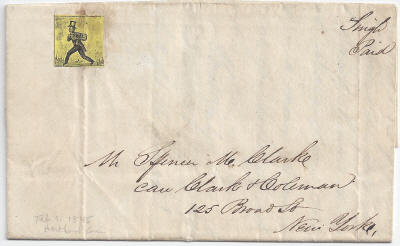 Single
Paid
Mr Spencer M. Clarke
care Clark & Coleman
125 Broad St
New York,
Feb 1. 1845
Hartford Con